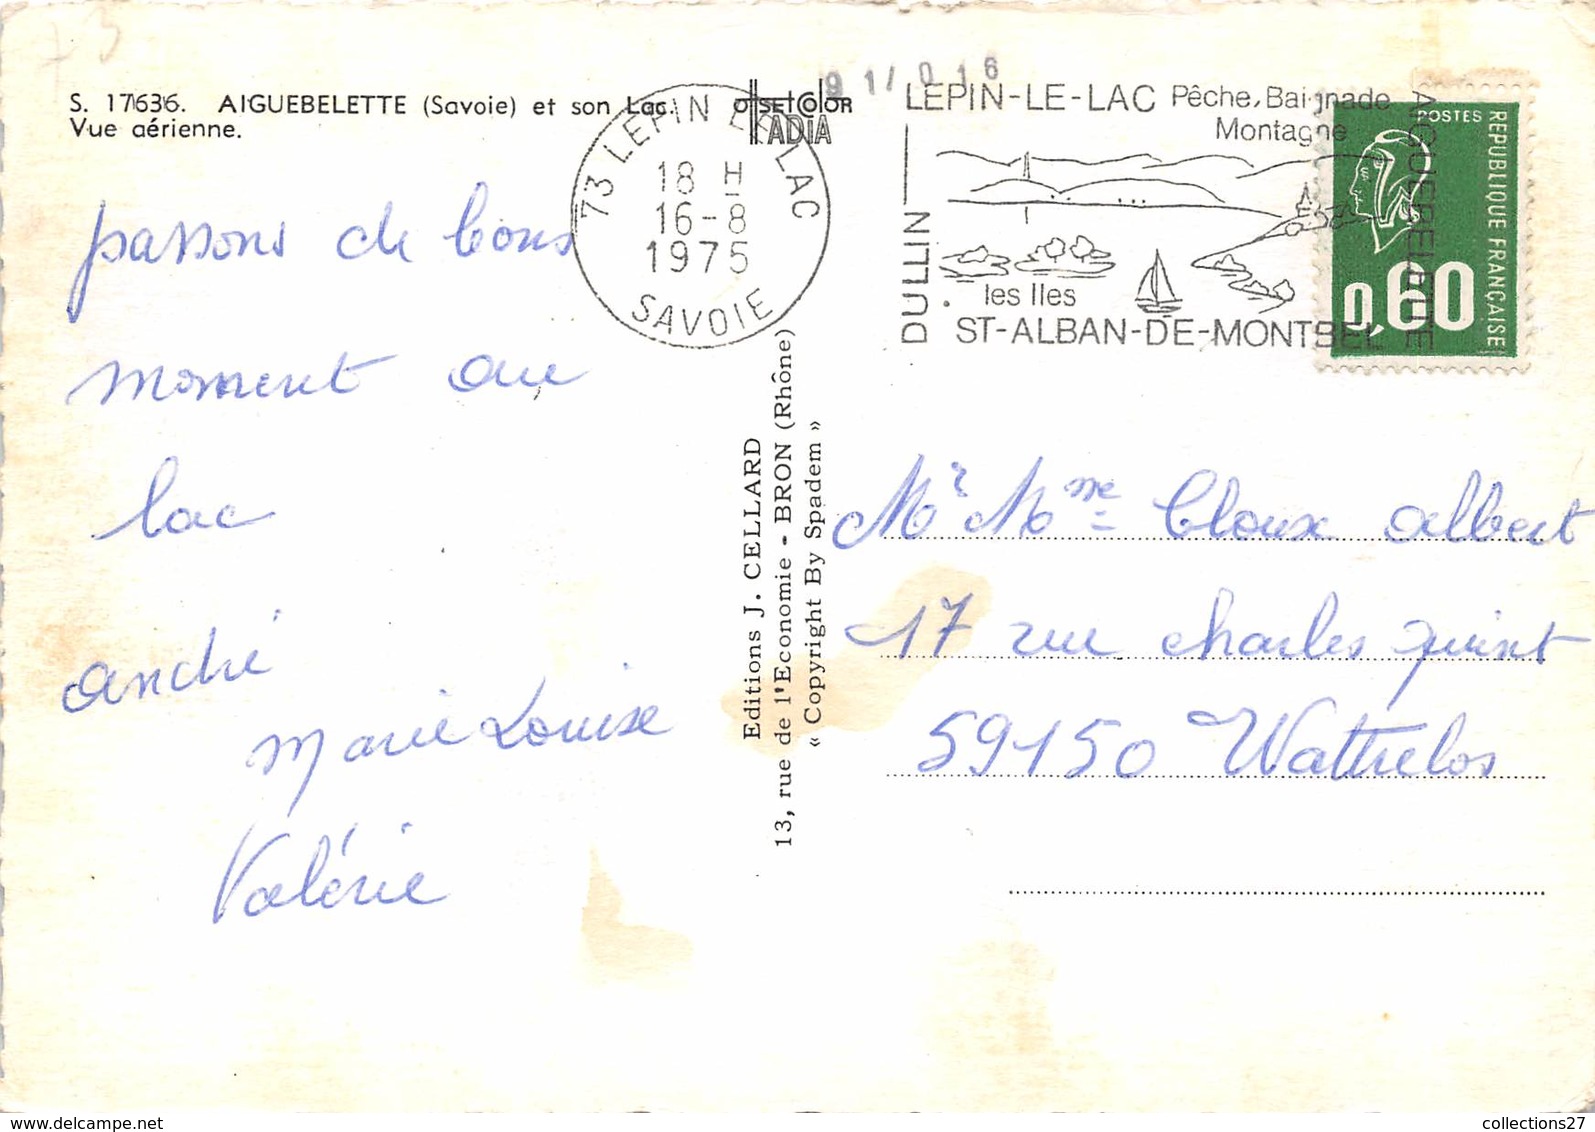 73
S. 17636. AIGUEBELETTE (Savoie) et son Lac.
Vue aérienne.
offset color
IADIA
91/016
73 LEPIN LE LAC
18 H
16-8
1975
SAVOIE
LEPIN-LE-LAC Pêche, Baignade
Montagne
DULLIN
les Iles
ST-ALBAN-DE-MONTBEL
AIGUEBELETTE
POSTES
REPUBLIQUE FRANÇAISE
0,60
passons de bons
moment au
lac
andré
Marie Louise
Valérie
Editions J. CELLARD
13, rue de l'Economie - BRON (Rhône)
« Copyright By Spadem »
Mr Mme Cloux albert
17 rue charles quint
59150 Wattrelos
www.delcampe.net
collections27